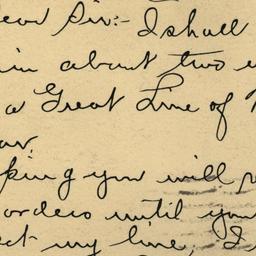 Dear Sir:- I shall
in about two
a Great Line of
ping you will
orders until you
my line, I